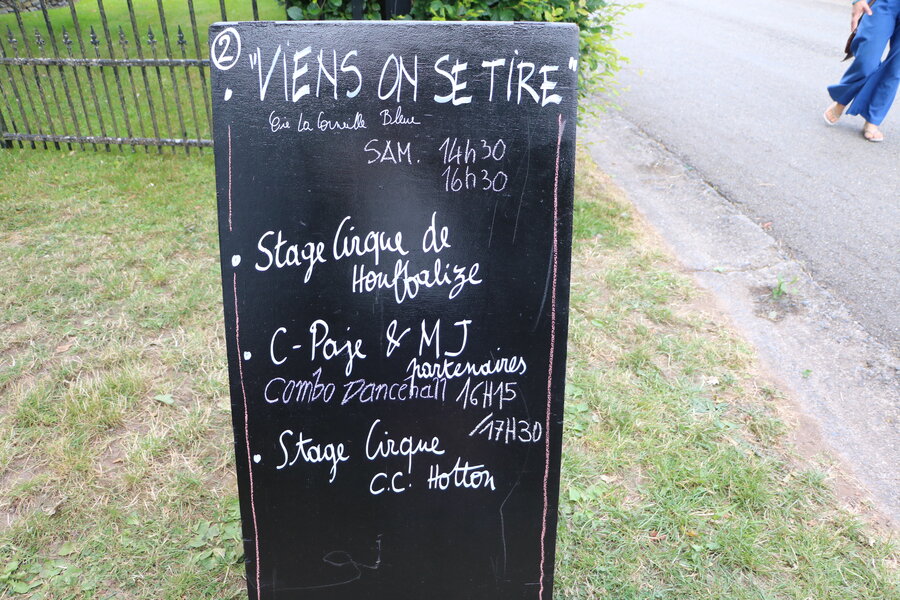 ②
"VIENS ON SE TIRE"
Cie La Corneille Bleue
SAM. 14h30
16h30
Stage Cirque de
Houffalize
C-Paje & MJ
partenaires
Combo Dancehall 16H15
/17H30
Stage Cirque
C.C. Hotton